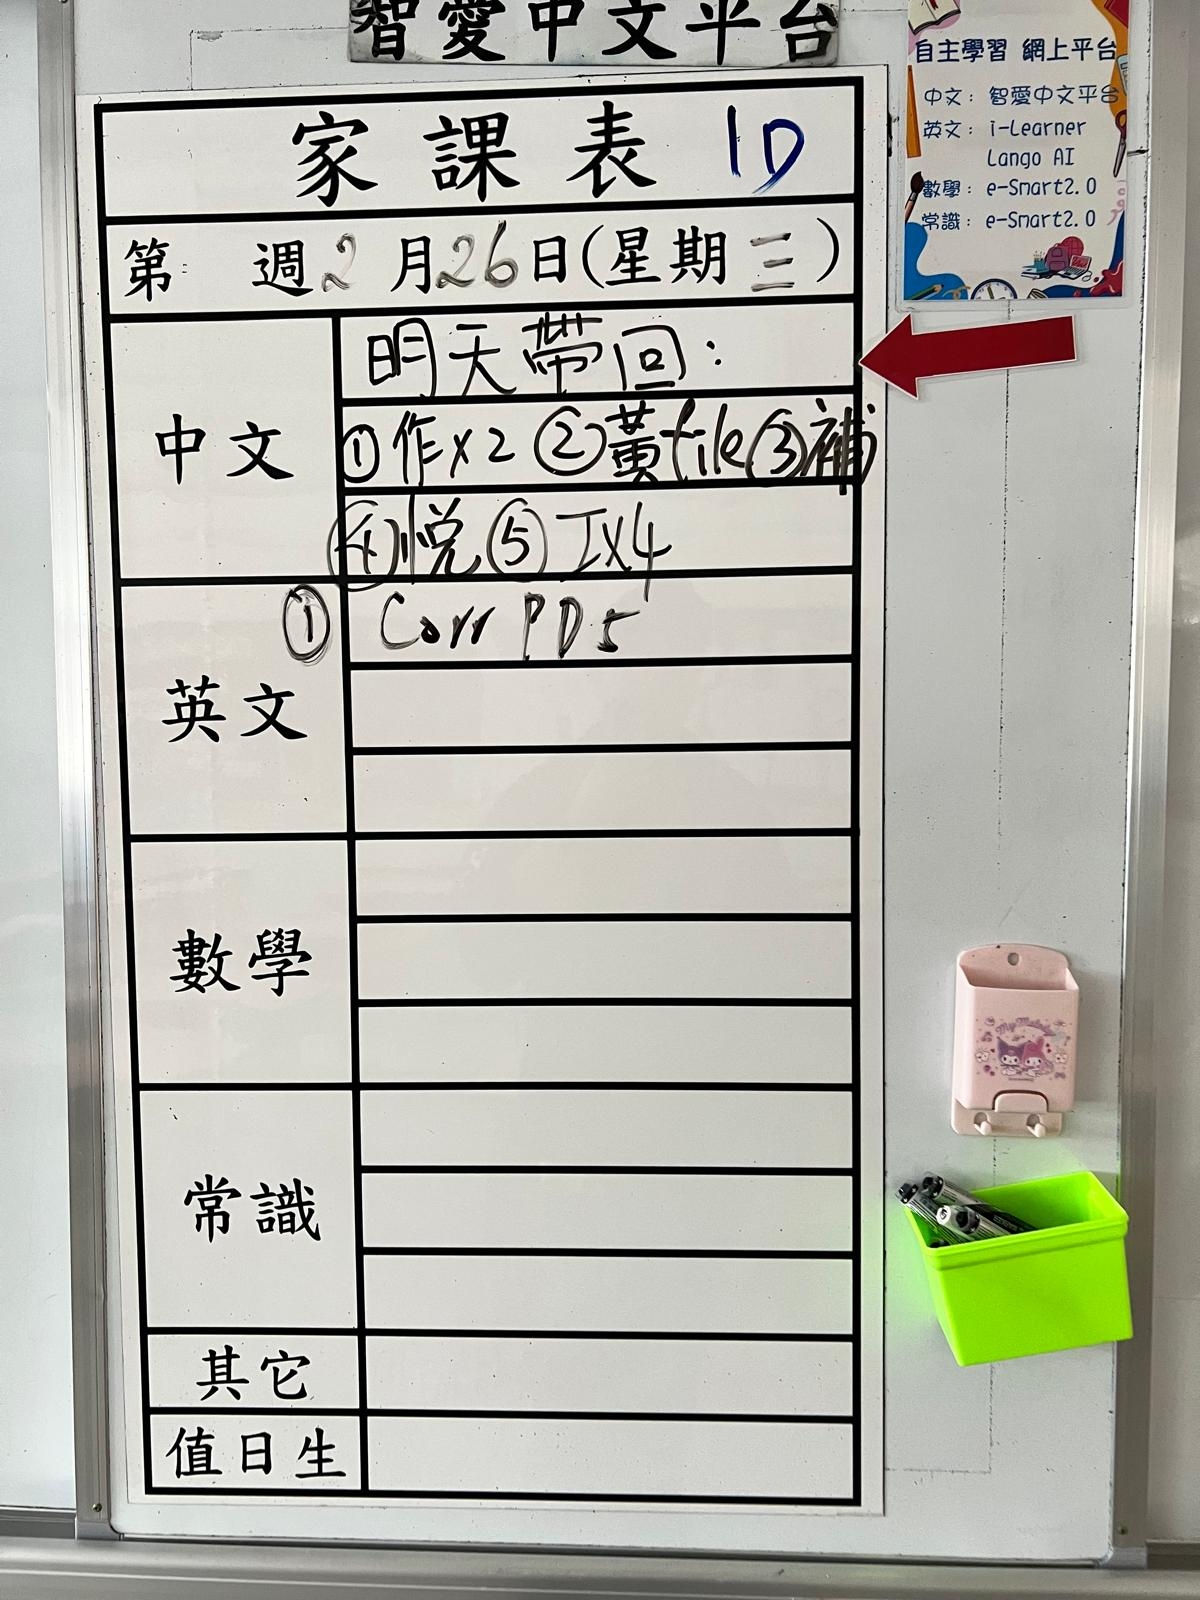 智愛中文平台
家課表 1D
第 週 2月26日(星期三)
中文
明天帶回：
①作x2 ②黃file③補
④悅⑤工x4
英文
① Corr PD5
數學
常識
其它
值日生
自主學習 網上平台
中文：智愛中文平台
英文：i-Learner
Lango AI
數學：e-Smart2.0
常識：e-Smart2.0
My Melody